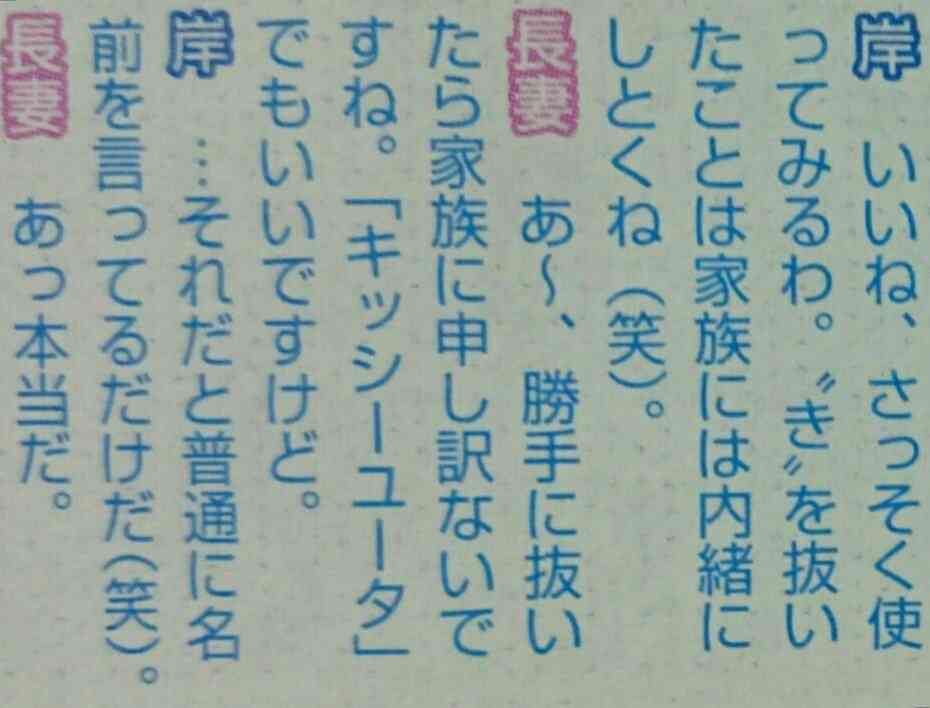 岸　いいね、さっそく使
ってみるわ。〝き〟を抜い
たことは家族には内緒に
しとくね（笑）。
長妻　あ〜、勝手に抜い
たら家族に申し訳ないで
すね。「キッシーユータ」
でもいいですけど。
岸　…それだと普通に名
前を言ってるだけだ（笑）。
長妻　あっ本当だ。